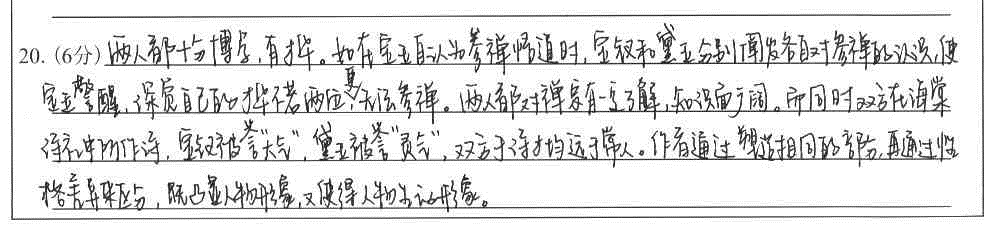 20. (6分) 两人都十分博学,有才华。如在宝玉自认为参禅悟道时,宝钗和黛玉分别阐发各自对参禅的认识,使
宝玉警醒,深觉自己的才华不若两位,更无法参禅。两人都对禅宗有一定了解,知识面广阔。而同时双方在海棠
诗社中所作诗,宝钗被誉“大气”,黛玉被誉“灵气”,双方于诗才均远于常人。作者通过塑造相同的部分,再通过性
格差异来区分,既凸显人物形象,又使得人物生动形象。